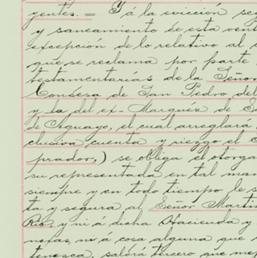 gentes. = Y á la evicción seg
y saneamiento de esta vent
excepcion de lo relativo al
que se reclama por parte
testamentarías de la Señor
Condesa de San Pedro del
y la del ex-Marqués de S
de Aguayo, el cual arreglará
clusiva cuenta y riesgo el C
prador,) se obliga el otorga
su representada en tal man
siempre y en todo tiempo le s
ta y segura al Señor Martin
Rio, y ni á dicha Hacienda y
nejas, ni á cosa alguna que
tenezca, saldrá tercero que mej